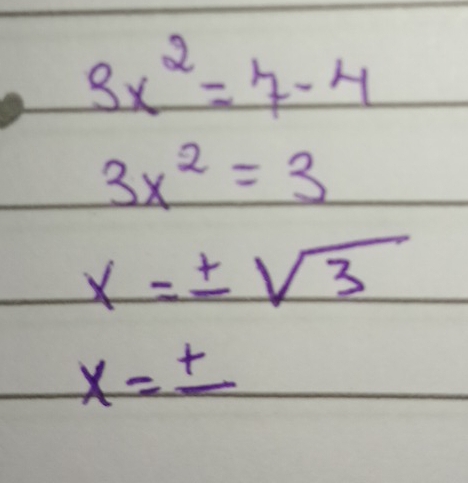 3x² = 7 - 4
3x² = 3
x = ± √3
x = ±